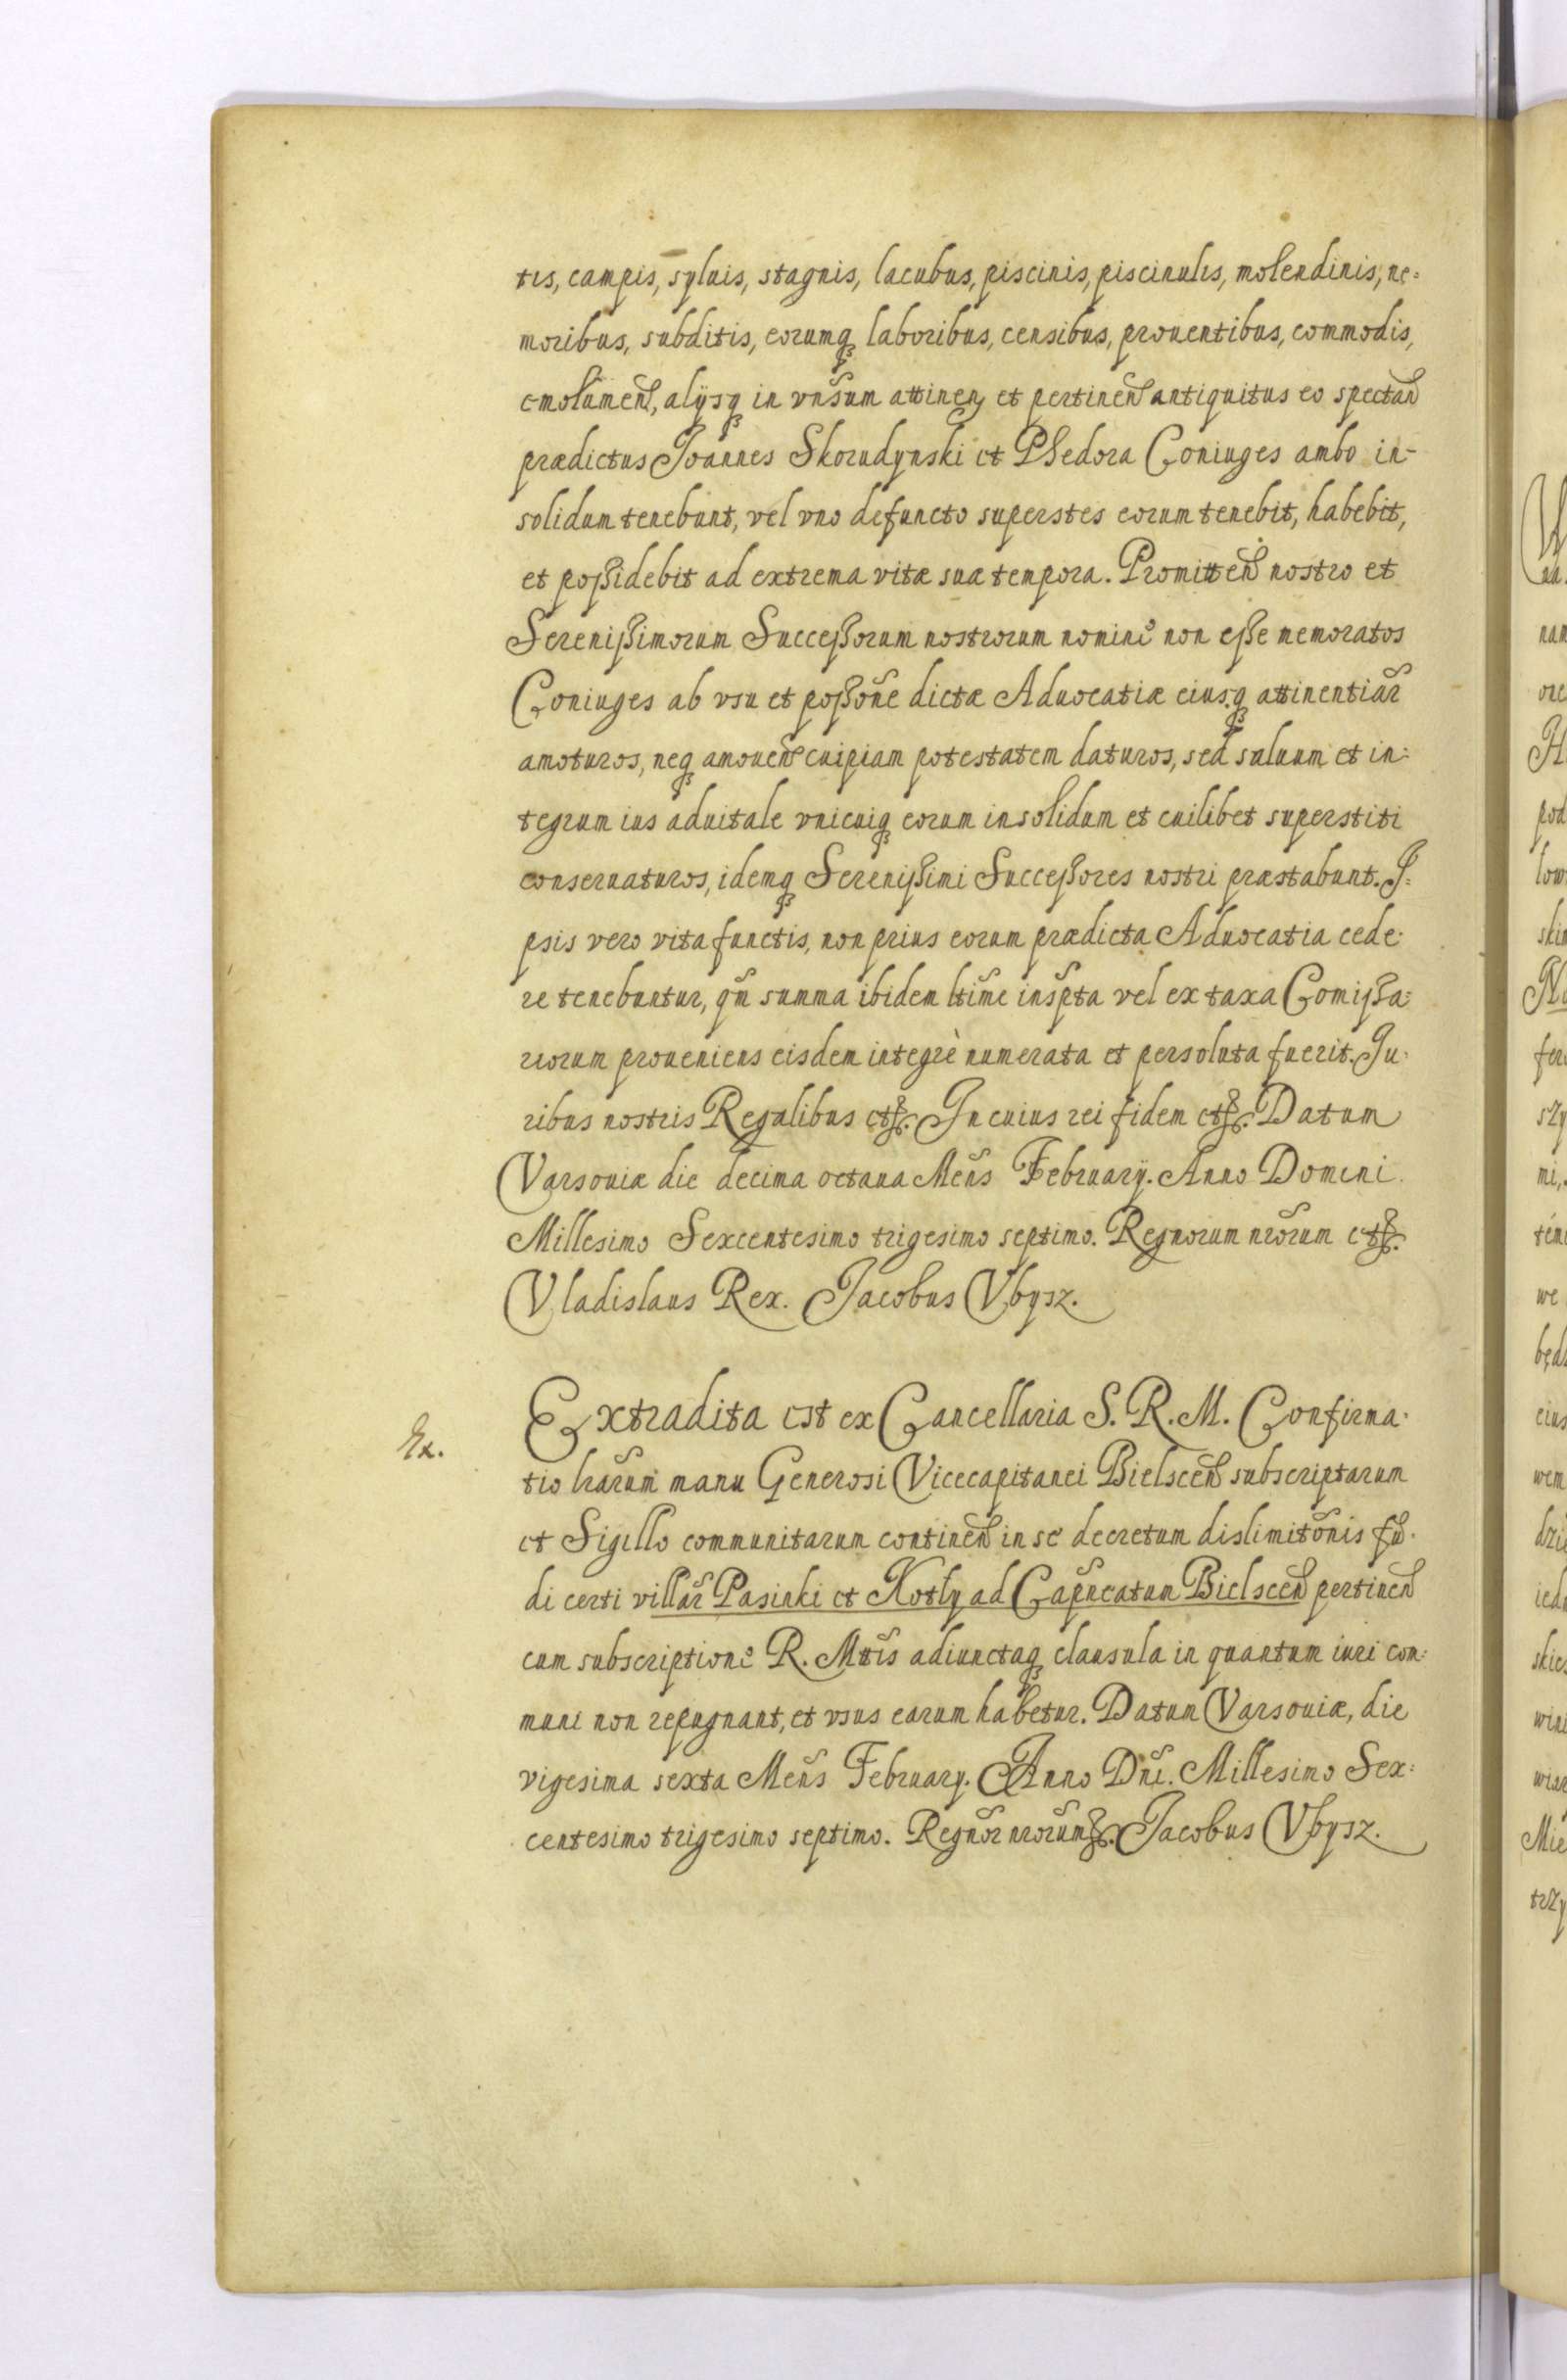 tis, campis, syluis, stagnis, lacubus, piscinis, piscinulis, molendinis, ne=
moribus, subditis, eorumq; laboribus, censibus, prouentibus, commodis,
emolumen̄, alÿsq; in vnīsum attinen̄ et pertinen̄ antiquitus eo spectan̄
prædictus Joannes Skorudynski et Phedora Coniuges ambo in-
solidum tenebunt, vel vno defuncto superstes eorum tenebit, habebit,
et poßidebit ad extrema vitæ suæ tempora. Promitten̄ nostro et
Sereniſſimorum Succeſſorum nostrorum nomine non eſſe memoratos
Coniuges ab vsu et poſſōne dictæ Aduocatiæ eiusq; attinentiār̄
amoturos, neq; amouen̄ cuipiam potestatem daturos, sed saluum et in=
tegrum ius aduitale vnicuiq; eorum insolidum et cuilibet superstiti
conseruaturos, idemq; Sereniſſimi Succeſſores nostri præstabunt. I=
psis vero vita functis, non prius eorum prædicta Aduocatia cede=
re tenebuntur, qm̄ summa ibidem ltīme inspta vel ex taxa Comiſſa=
riorum proueniens eisdem integrè numerata et persoluta fuerit. Iu=
ribus nostris Regalibus etc. In cuius rei fidem etc. Datum
Varsouiæ die decima octaua Mēns Februarÿ. Anno Domini
Millesimo Sexcentesimo trigesimo septimo. Regnorum nrōrum etc.
Vladislaus Rex. Jacobus Vbysz.
Ex.
Extradita est ex Cancellaria S. R. M. Confirma=
tio lrārum manu Generosi Vicecapitanei Bielscen̄ subscriptarum
et Sigillo communitarum continen̄ in se decretum dislimitōnis fu=
di certi villār̄ Pasinki et Kotły ad Capn̄eatum Bielscen̄ pertinen̄
cum subscriptione R. Mttis adiunctaq; clausula in quantum iuri com=
muni non repugnant, et vsus earum habetur. Datum Varsouiæ, die
vigesima sexta Mēns February. Anno Dn̄i. Millesimo Sex=
centesimo trigesimo septimo. Regnōr nrōrum etc. Jacobus Vbysz.